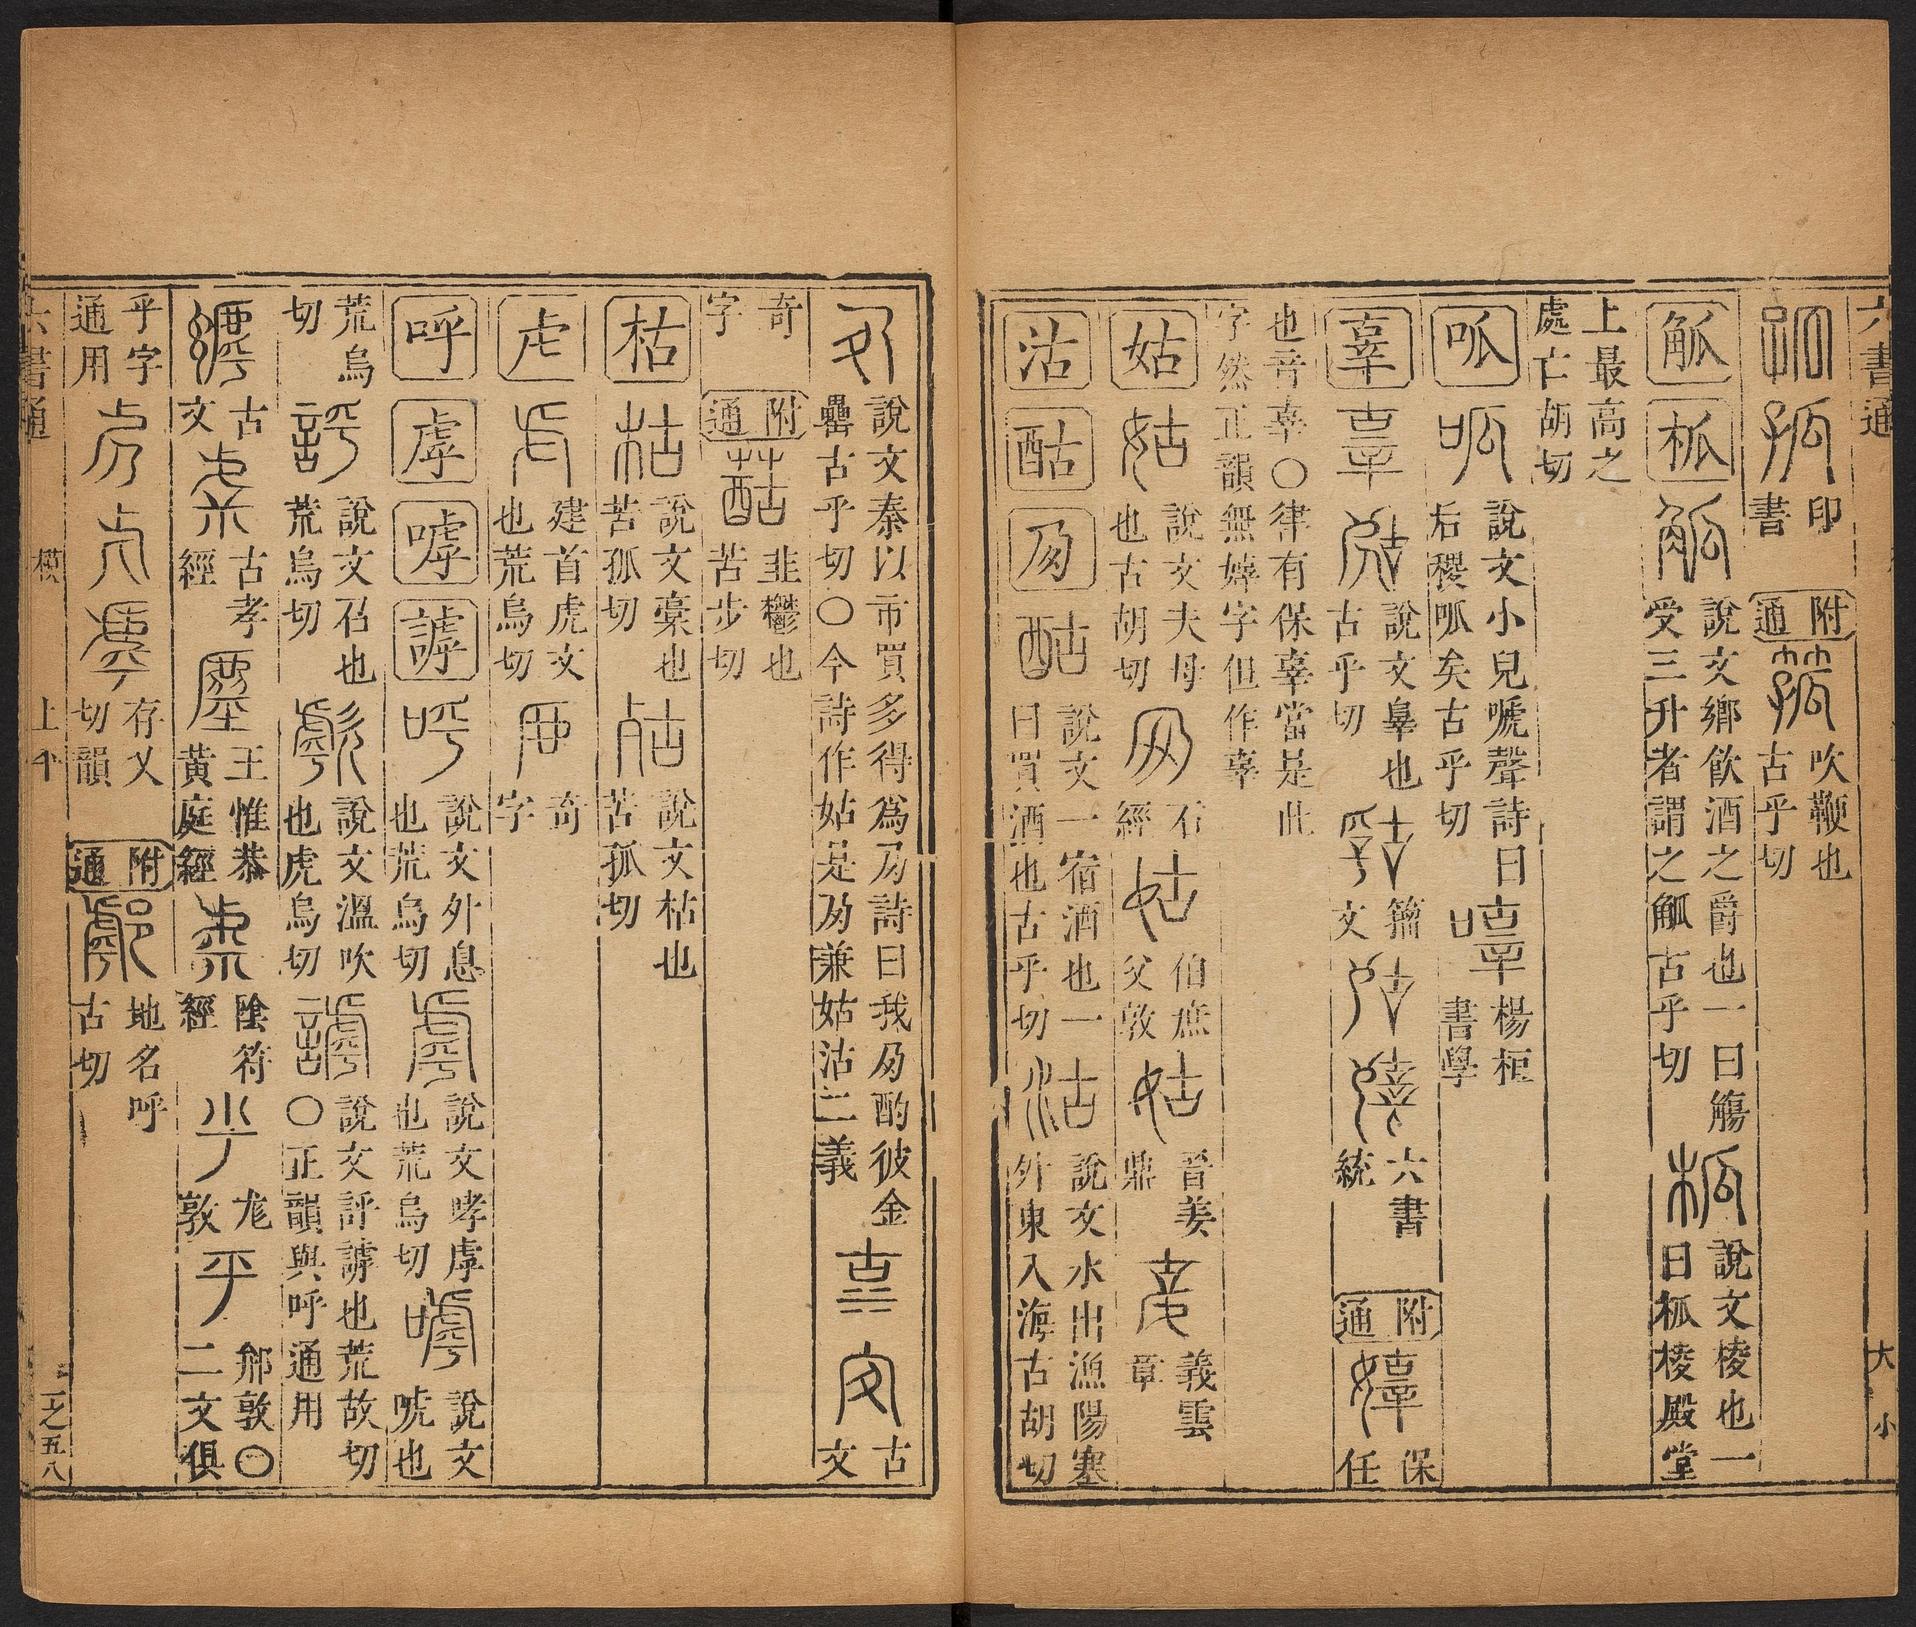 六書通
印書
附通
吹鞭也古乎切
觚
柧
說文鄉飲酒之爵也一曰觴受三升者謂之觚古乎切
說文棱也一曰柧棱殿堂
上最高之處亡胡切
呱
說文小兒嗁聲詩曰后稷呱矣古乎切
楊桓書學
辜
說文辠也古乎切
籀文
六書統
附通
保任
也音辜○律有保辜當是此字然正韻無嫴字但作辜
姑
說文夫母也古胡切
石經
伯庶父敦
晉姜鼎
義雲章
沽
酤
夃
說文一宿酒也一曰買酒也古乎切
說文水出漁陽塞外東入海古胡切
說文秦以市買多得為夃詩曰我夃酌彼金罍古乎切○今詩作姑是夃兼姑沽二義
古文
奇字
附通
韭鬱也苦步切
枯
說文槀也苦孤切
說文枯也苦孤切
虍
建首虎文也荒烏切
奇字
呼
虖
嘑
謼
說文外息也荒烏切
說文哮虖也荒烏切
說文唬也
荒烏切
說文召也荒烏切
說文溫吹也虎烏切
說文評謼也荒故切○正韻與呼通用
古文
古孝經
王惟恭黃庭經
陰符經
尨敦
䣄敦○二文俱
乎字通用
存乂切韻
附通
地名呼古切
六書通
模
上平
一之五八